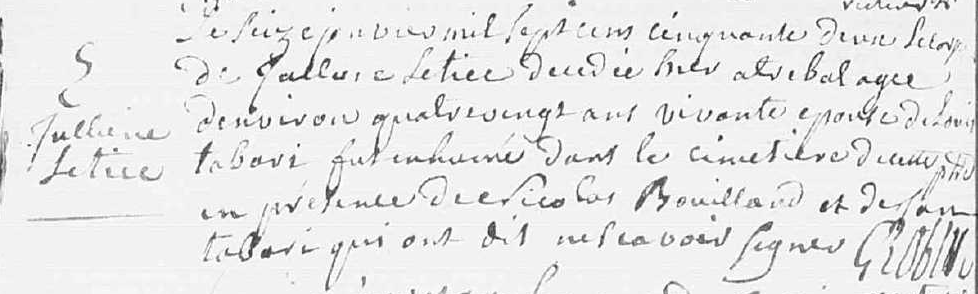 S
Jullienne
Letice
Le seize janvier mil sept cens cinquante deux le corp
de Jullienne Letice decedée hier a trebal agee
d'environ quatre vingt ans vivante epouse de Louis
tabari fut inhumé dans le cimetiere de cette psse
en présence de Nicolas Bouilland et de Jan
tabari qui ont dit ne scavoir signer